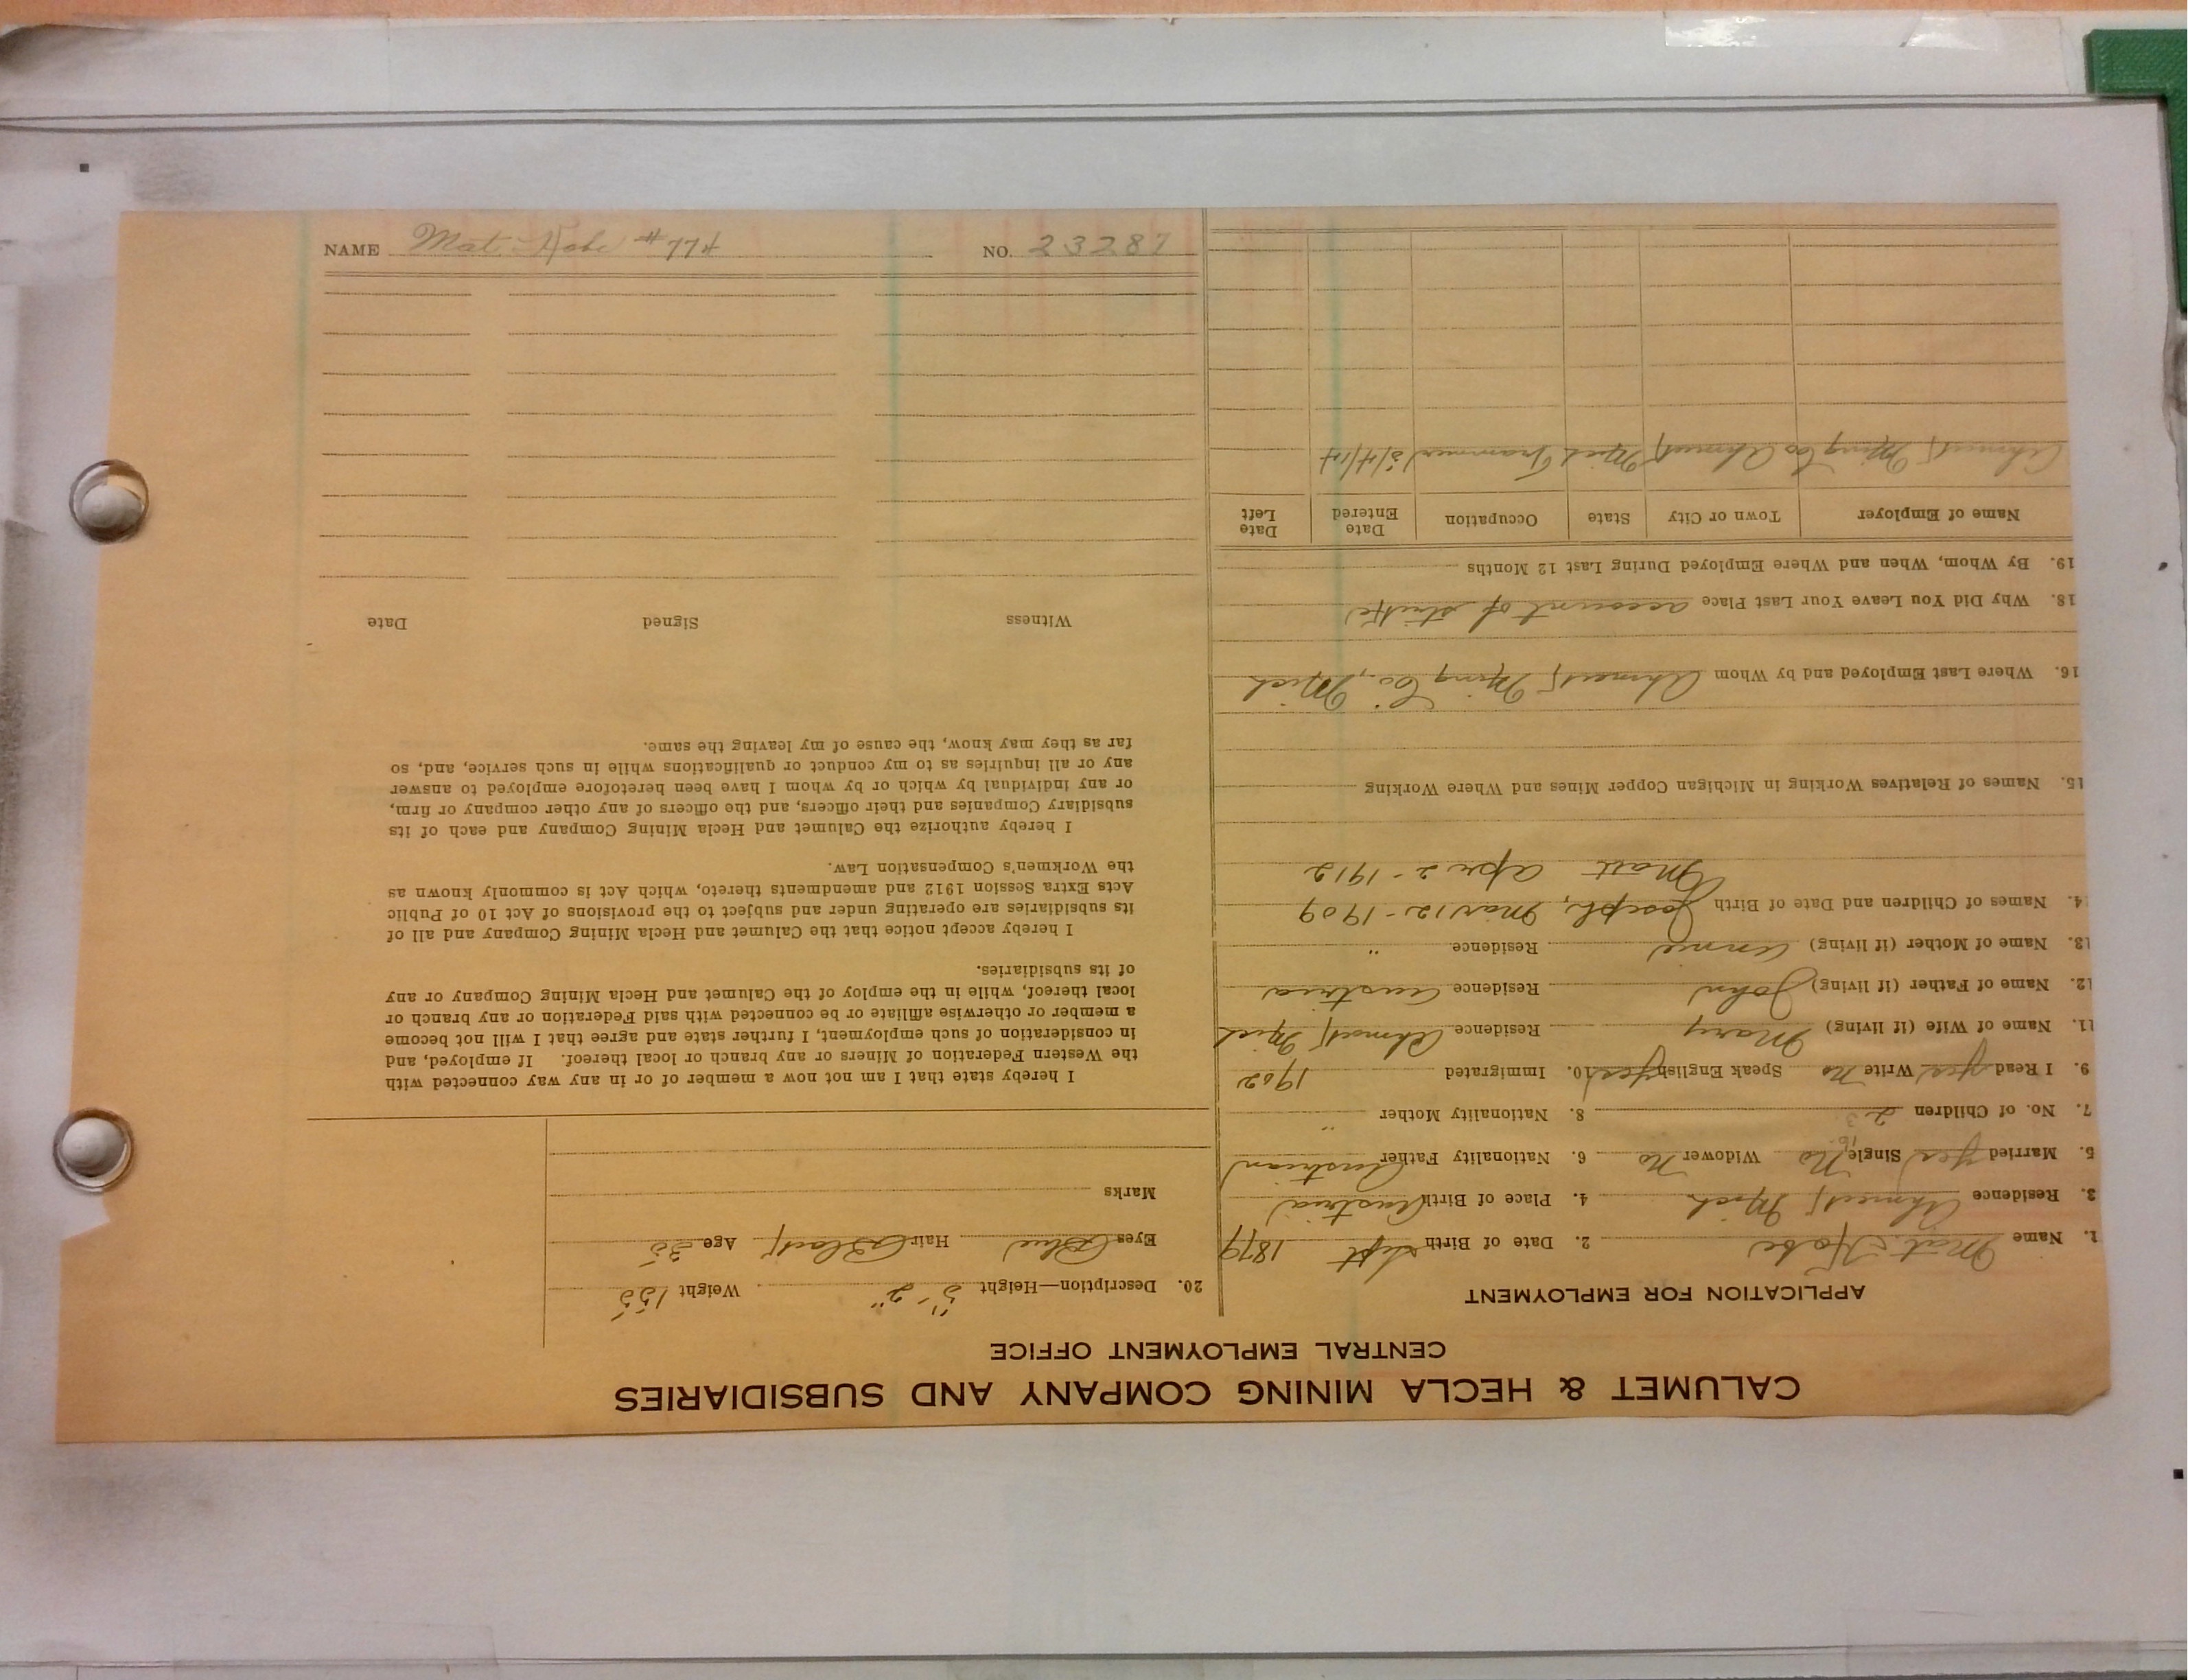 CALUMET & HECLA MINING COMPANY AND SUBSIDIARIES
CENTRAL EMPLOYMENT OFFICE
APPLICATION FOR EMPLOYMENT
1. Name Mat. Kobe 2. Date of Birth Sept 1879
3. Residence Ahmeek Mich 4. Place of Birth Austria
5. Married yes Single No Widower No 6. Nationality Father Austrian
7. No. of Children 2 8. Nationality Mother "
9. I Read yes Write No Speak English yes 10. Immigrated 1902
11. Name of Wife (if living) Mary Residence Ahmeek Mich
12. Name of Father (if living) John Residence Austria
13. Name of Mother (if living) Annie Residence "
14. Names of Children and Date of Birth Joseph, Mar 12-1909
Matt Apr 2-1912
15. Names of Relatives Working in Michigan Copper Mines and Where Working
16. Where Last Employed and by Whom Ahmeek Ming Co., Mich
18. Why Did You Leave Your Last Place account of strike
19. By Whom, When and Where Employed During Last 12 Months
Name of Employer Town or City State Occupation Date Entered Date Left
Ahmeek Ming Co Ahmeek Mich Trammer 3/4/14
20. Description—Height 5'-2" Weight 155
Eyes Blue Hair Black Age 35
Marks
I hereby state that I am not now a member of or in any way connected with
the Western Federation of Miners or any branch or local thereof. If employed, and
in consideration of such employment, I further state and agree that I will not become
a member or otherwise affiliate or be connected with said Federation or any branch or
local thereof, while in the employ of the Calumet and Hecla Mining Company or any
of its subsidiaries.
I hereby accept notice that the Calumet and Hecla Mining Company and all of
its subsidiaries are operating under and subject to the provisions of Act 10 of Public
Acts Extra Session 1912 and amendments thereto, which Act is commonly known as
the Workmen's Compensation Law.
I hereby authorize the Calumet and Hecla Mining Company and each of its
subsidiary Companies and their officers, and the officers of any other company or firm,
or any individual by which or by whom I have been heretofore employed to answer
any or all inquiries as to my conduct or qualifications while in such service, and, so
far as they may know, the cause of my leaving the same.
Witness Signed Date
NAME Mat. Kobe #774 NO. 23287